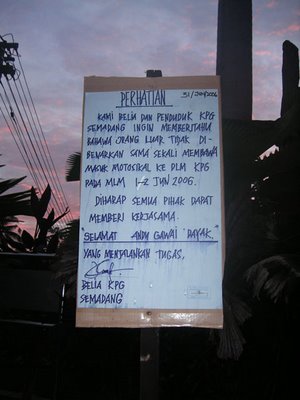 31/JAN/2006
PERHATIAN
KAMI BELIA DAN PENDUDUK KPG
SEMADANG INGIN MEMBERITAHU
BAHAWA ORANG LUAR TIDAK DI-
BENARKAN SAMA SEKALI MEMBAWA
MASUK MOTOSIKAL KE DLM KPG
PADA MLM 1-2 JUN 2006.
DIHARAP SEMUA PIHAK DAPAT
MEMBERI KERJASAMA.
"SELAMAT ANDU GAWAI DAYAK."
YANG MENJALANKAN TUGAS,
BELIA KPG
SEMADANG